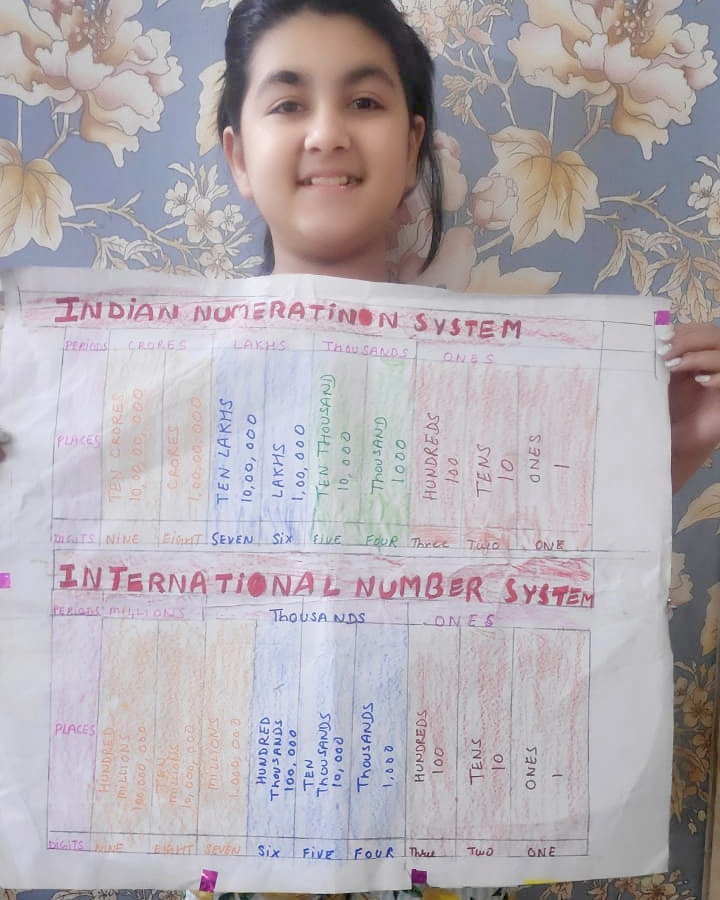 INDIAN NUMERATINON SYSTEM
PERIODS CRORES LAKHS THOUSANDS ONES
PLACES
TEN CRORES
10,00,00,000
CRORES
1,00,00,000
TEN LAKHS
10,00,000
LAKHS
1,00,000
TEN THOUSAND
10,000
THOUSAND
1000
HUNDREDS
100
TENS
10
ONES
1
DIGITS NINE EIGHT SEVEN SIX FIVE FOUR Three TWO ONE
INTERNATIONAL NUMBER SYSTEM
PERIODS MILLIONS THOUSANDS ONES
PLACES
HUNDRED
MILLIONS
100,000,000
TEN
MILLIONS
10,000,000
MILLIONS
1,000,000
HUNDRED
THOUSANDS
100,000
TEN
THOUSANDS
10,000
THOUSANDS
1,000
HUNDREDS
100
TENS
10
ONES
1
DIGITS NINE EIGHT SEVEN SIX FIVE FOUR Three TWO ONE